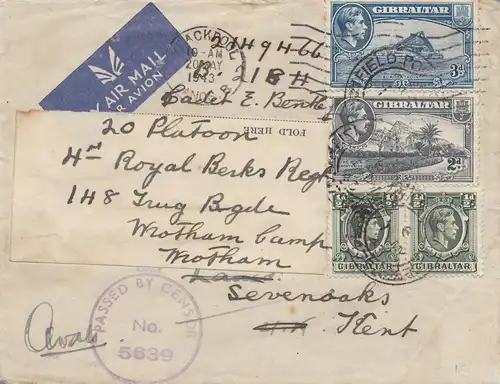 BY AIR MAIL
PAR AVION
BLACKPOOL
10-AM
20 MAY
1943
149466
21BH
Cadet E.
FOLD HERE
20 Platoon
4th Royal Berks Regt
148 Trng Bgde
Wrotham Camp
Wrotham
Sevenoaks
Kent
PASSED BY CENSOR
No.
5639
GIBRALTAR
3d
GIBRALTAR
2d
½d
½d
GIBRALTAR
GIBRALTAR